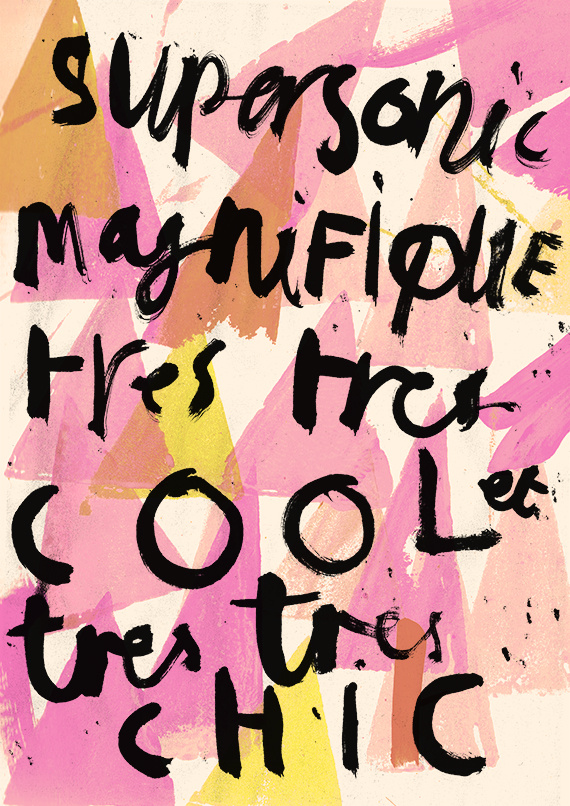 supersonic
magnifiQUE
tres tres
COOL et
tres tres
CHIC